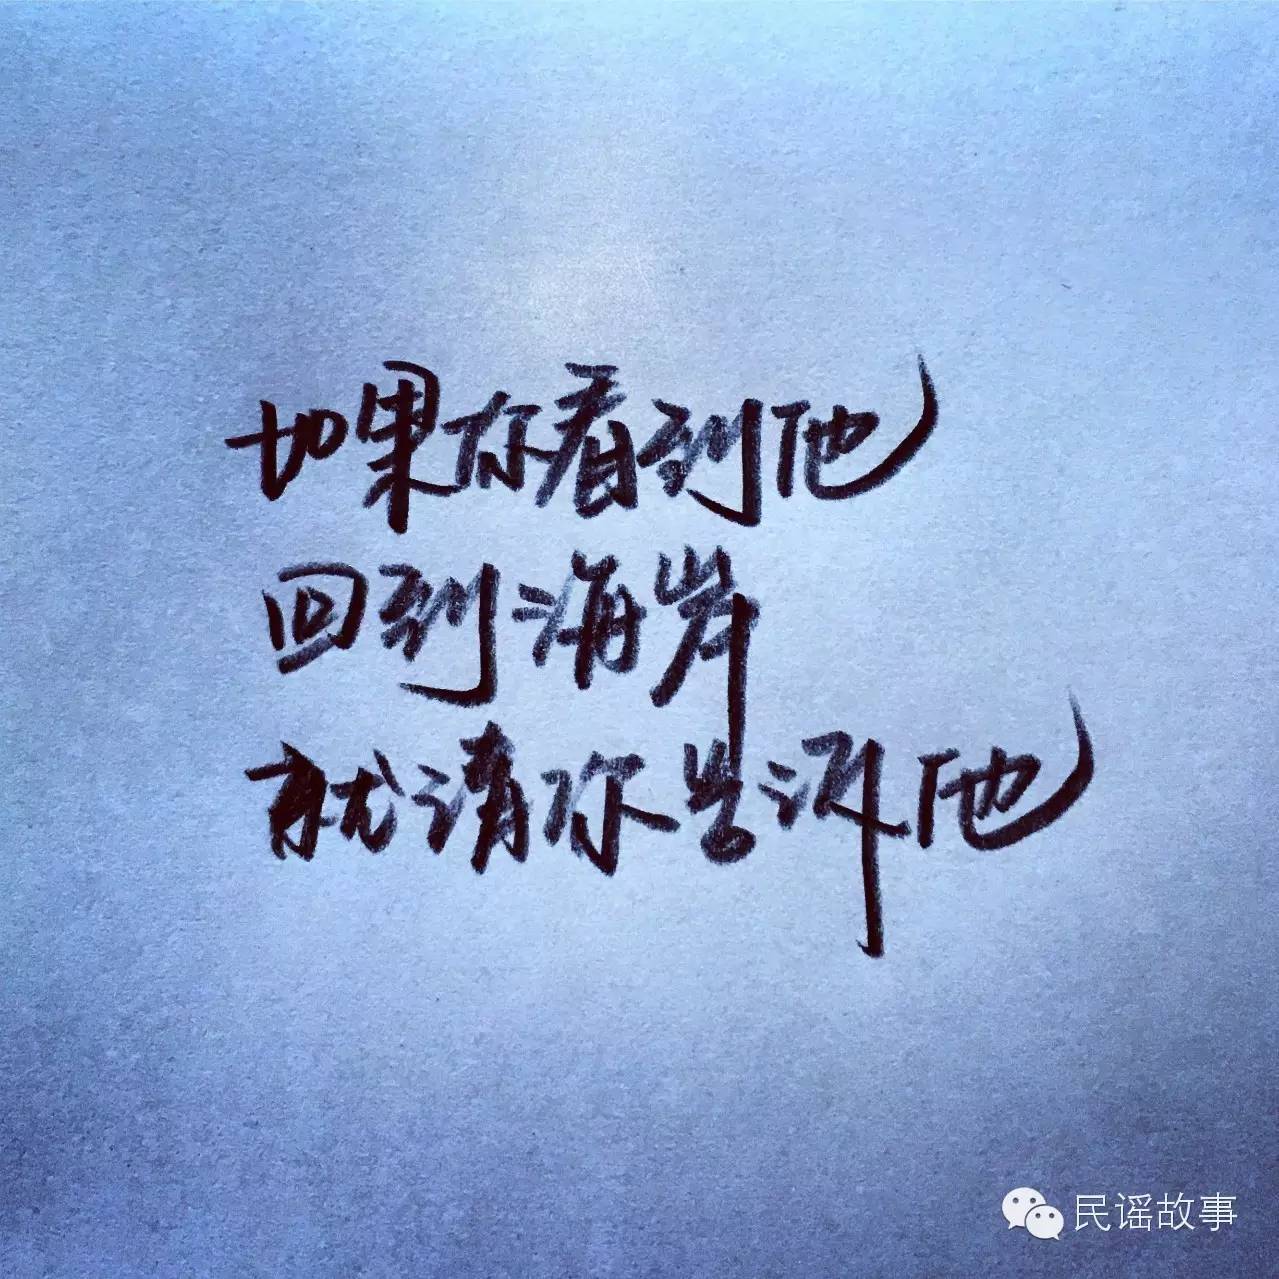 如果你看到他
回到海岸
就请你告诉他
民谣故事